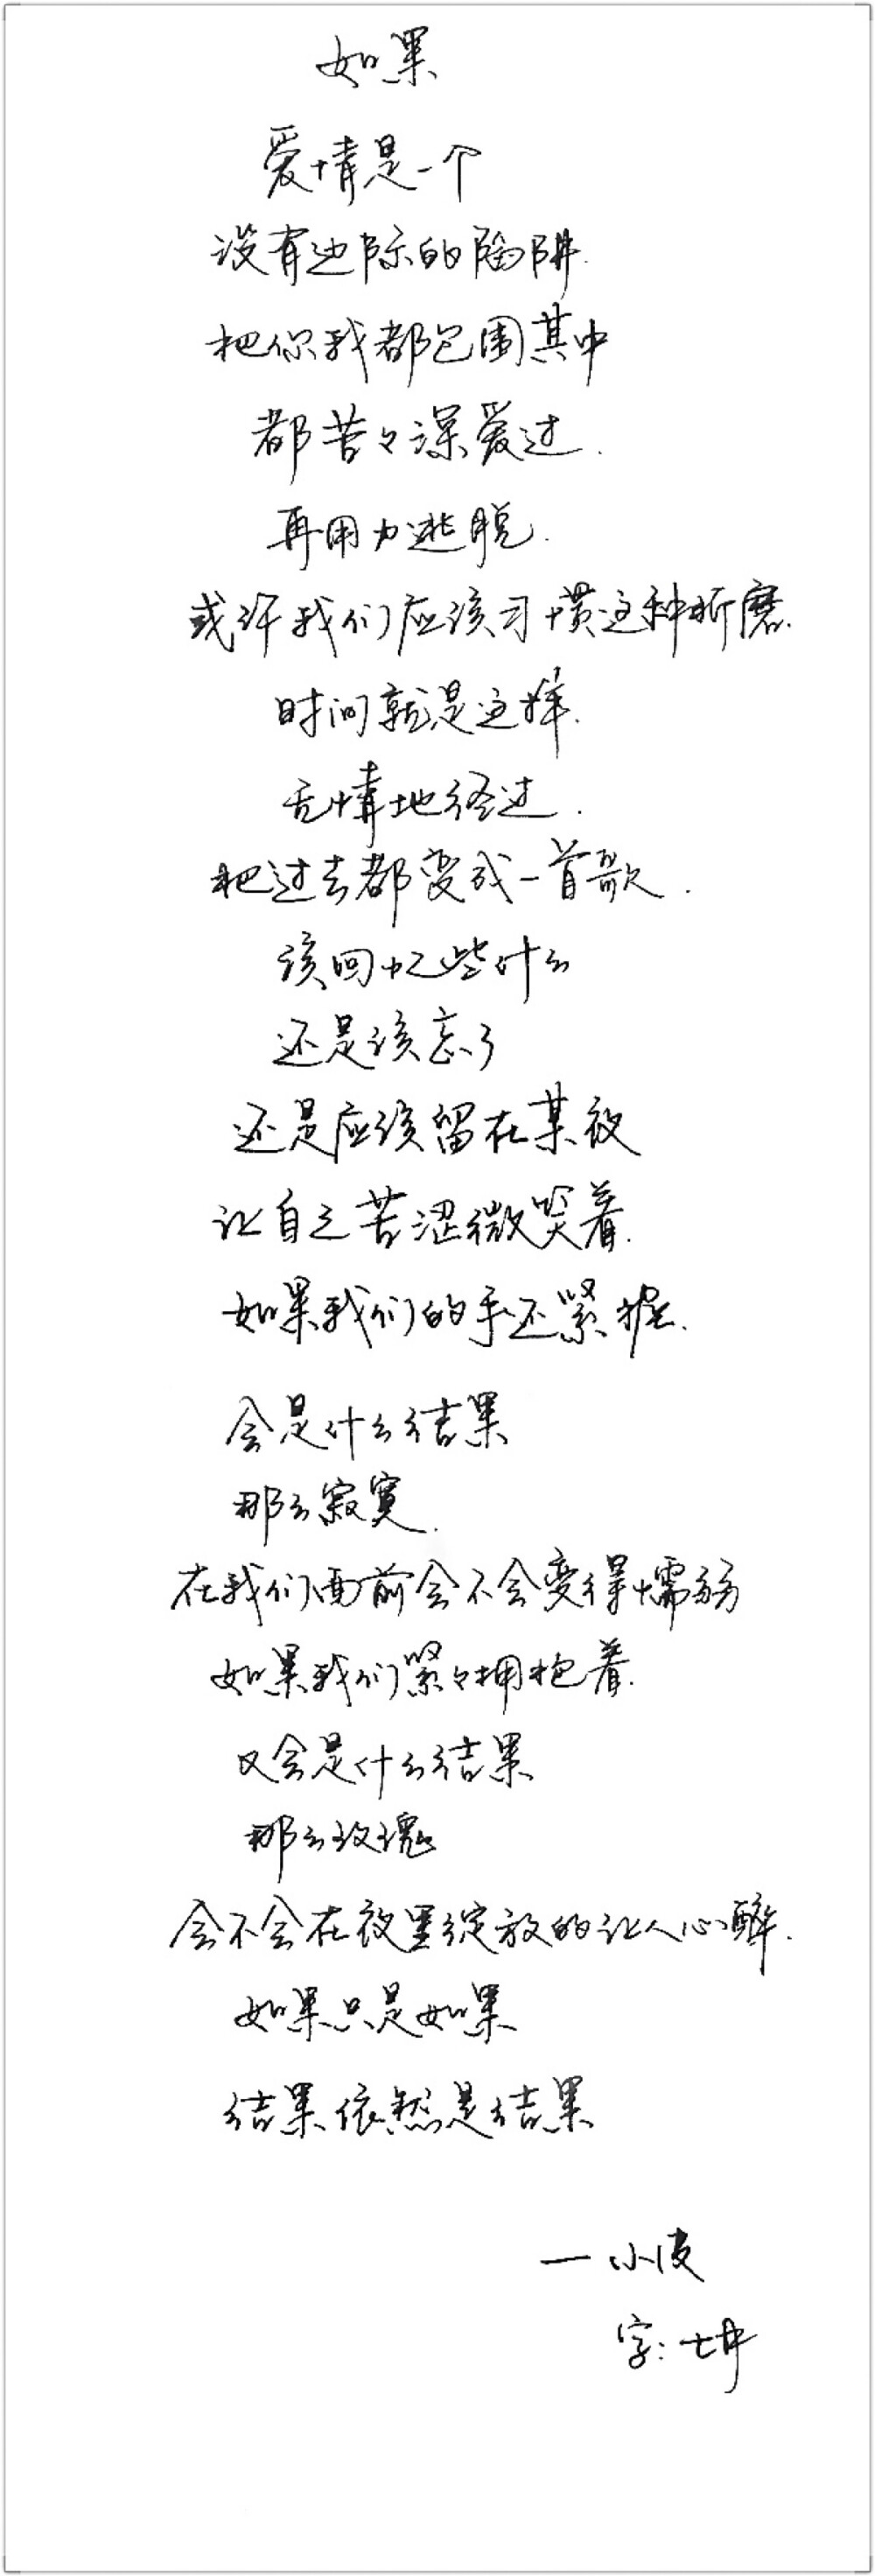 如果
爱情是一个
没有边际的陷阱.
把你我都包围其中
都苦々深爱过.
再用力逃脱.
或许我们应该习惯这种折磨.
时间就是这样.
无情地经过.
把过去都变成一首歌.
该回忆些什么
还是该忘了
还是应该留在某夜
让自己苦涩微笑着.
如果我们的手还紧握.
会是什么结果
那么寂寞.
在我们面前会不会变得懦弱
如果我们紧々拥抱着.
又会是什么结果
那么玫瑰
会不会在夜里绽放的让人心醉.
如果只是如果
结果依然是结果
一小
字: